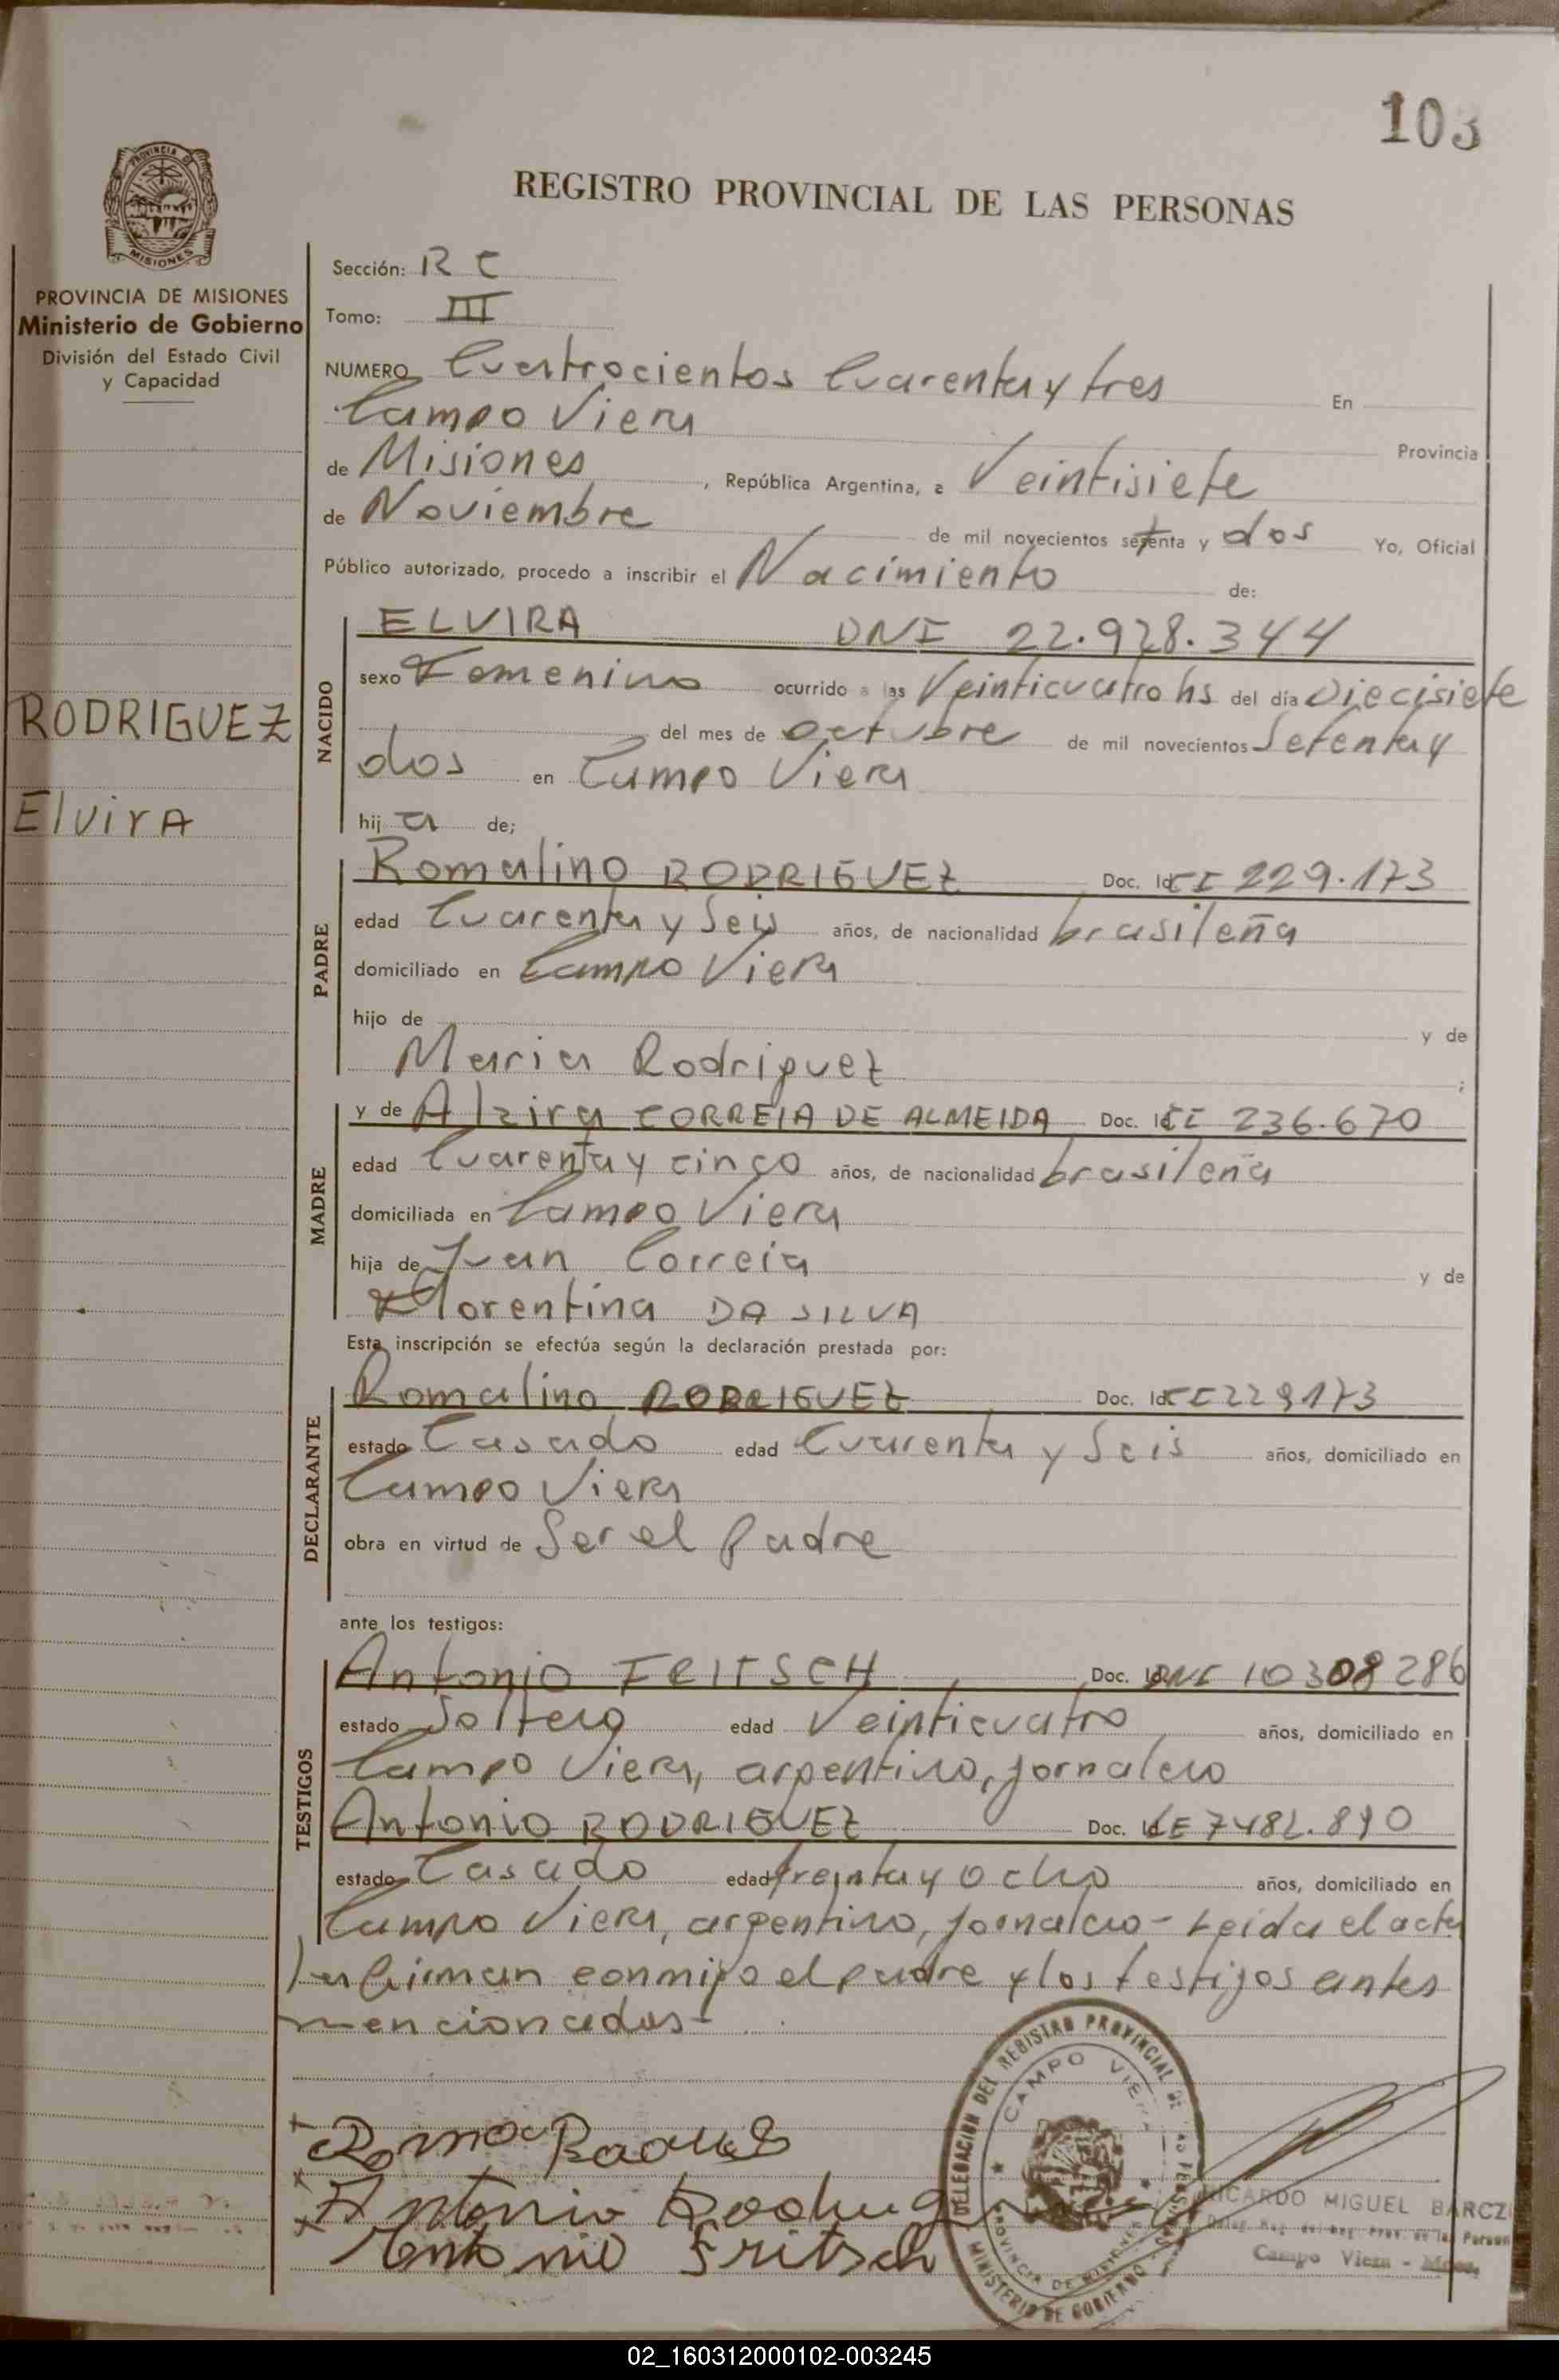 103
PROVINCIA DE
MISIONES
REGISTRO PROVINCIAL DE LAS PERSONAS
PROVINCIA DE MISIONES
Ministerio de Gobierno
División del Estado Civil
y Capacidad
RODRIGUEZ
ElvirA
Sección: R C
Tomo: III
NUMERO Cuatrocientos Cuarenta y tres En
Campo Viera Provincia
de Misiones , República Argentina, a Veintisiete
de Noviembre de mil novecientos setenta y dos Yo, Oficial
Público autorizado, procedo a inscribir el Nacimiento de:
NACIDO
ELVIRA DNI 22.928.344
sexo Femenino ocurrido a las Veinticuatro hs del día Diecisiete
del mes de octubre de mil novecientos Setenta y
dos en Campo Viera
hij a de;
PADRE
Romalino RODRIGUEZ Doc. Id CI 229.173
edad Cuarenta y Seis años, de nacionalidad brasileña
domiciliado en Campo Viera
hijo de y de
Maria Rodriguez ;
MADRE
y de Alzira CORREIA DE ALMEIDA Doc. Id CI 236.670
edad Cuarenta y cinco años, de nacionalidad brasileña
domiciliada en Campo Viera
hija de Juan Correia y de
Florentina DA SILVA
Esta inscripción se efectúa según la declaración prestada por:
DECLARANTE
Romalino RODRIGUEZ Doc. Id CI 229173
estado Casado edad Cuarenta y Seis años, domiciliado en
Campo Viera
obra en virtud de Ser el Padre
ante los testigos:
TESTIGOS
Antonio FRITSCH Doc. Id DNI 10308286
estado Soltero edad Veinticuatro años, domiciliado en
Campo Viera, argentino, jornalero
Antonio RODRIGUEZ Doc. Id LE 7482.890
estado Casado edad treinta y ocho años, domiciliado en
Campo Viera, argentino, jornalero - Leida el acta
la firman conmigo el padre y los testigos antes
mencionados -
Antonio
Antonio Fritsch
DELEGACION DEL REGISTRO PROVINCIAL DE LAS PERSONAS
CAMPO VIERA
PROVINCIA DE MISIONES
MINISTERIO DE GOBIERNO
RICARDO MIGUEL BARCZ
Campo Viera - Mnes.
02_160312000102-003245